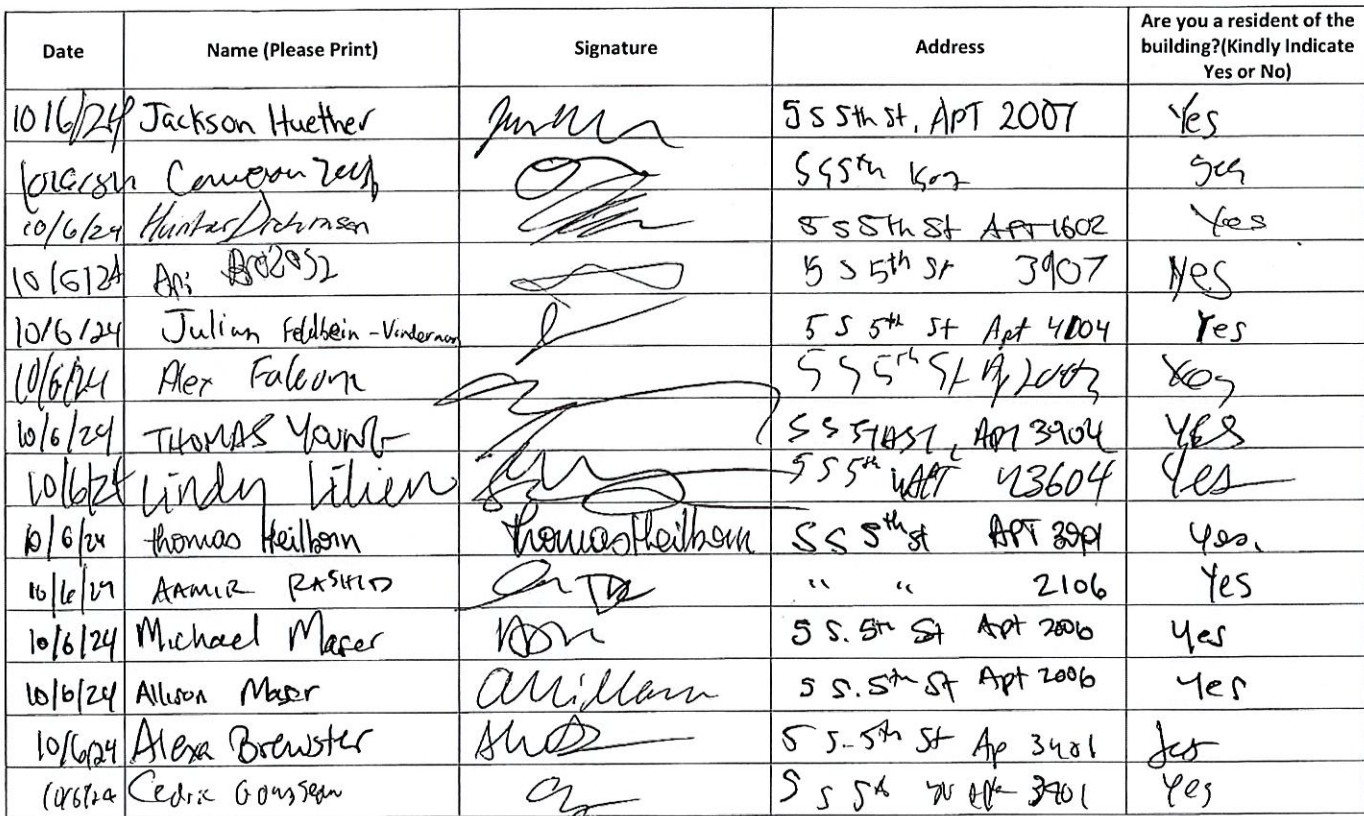 Date Name (Please Print) Signature Address Are you a resident of the building?(Kindly Indicate Yes or No)
10/6/24 Jackson Huether 5 S 5th St, APT 2007 Yes
5 S 5th
10/6/24 Hunter Dickinson 5 S 5th St APT 1602 Yes
10/6/24 Ari 5 S 5th St 3907 Yes
10/6/24 Julian Feldbein-Vinderman 5 S 5th St Apt 4004 Yes
10/6/24 Alex Falcone 5 S 5th St Yes
10/6/24 THOMAS Young 5 S 5th ST, APT 3904 YES
10/6/24 Lindy Lilien 5 S 5th 3604 Yes
10/6/24 thomas Heilborn thomas Heilborn 5 S 5th st APT 3901 Yes.
10/6/24 AAMIR RASHID " " 2106 Yes
10/6/24 Michael Maser 5 S. 5th St Apt 2006 Yes
10/6/24 Allison Maser 5 S. 5th St Apt 2006 Yes
10/6/24 Alexa Brewster 5 S. 5th St Ap 3401 Yes
10/6/24 Cedric 5 S 5th 3401 Yes